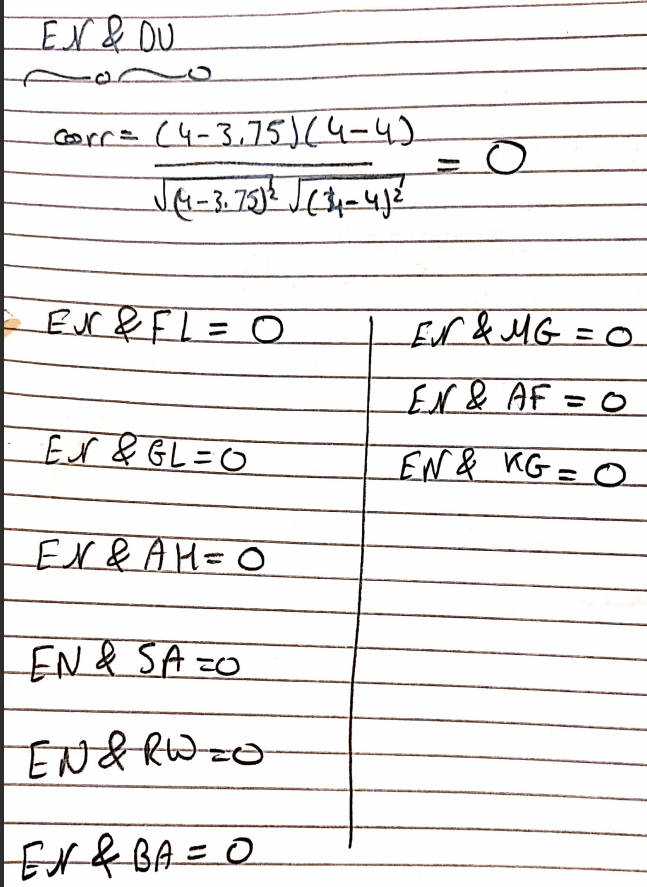 EN & DU
corr = (4-3.75)(4-4)
√(4-3.75)² √(4-4)² = 0
EN & FL = 0
EN & GL = 0
EN & AH = 0
EN & SA = 0
EN & RW = 0
EN & BA = 0
EN & MG = 0
EN & AF = 0
EN & KG = 0